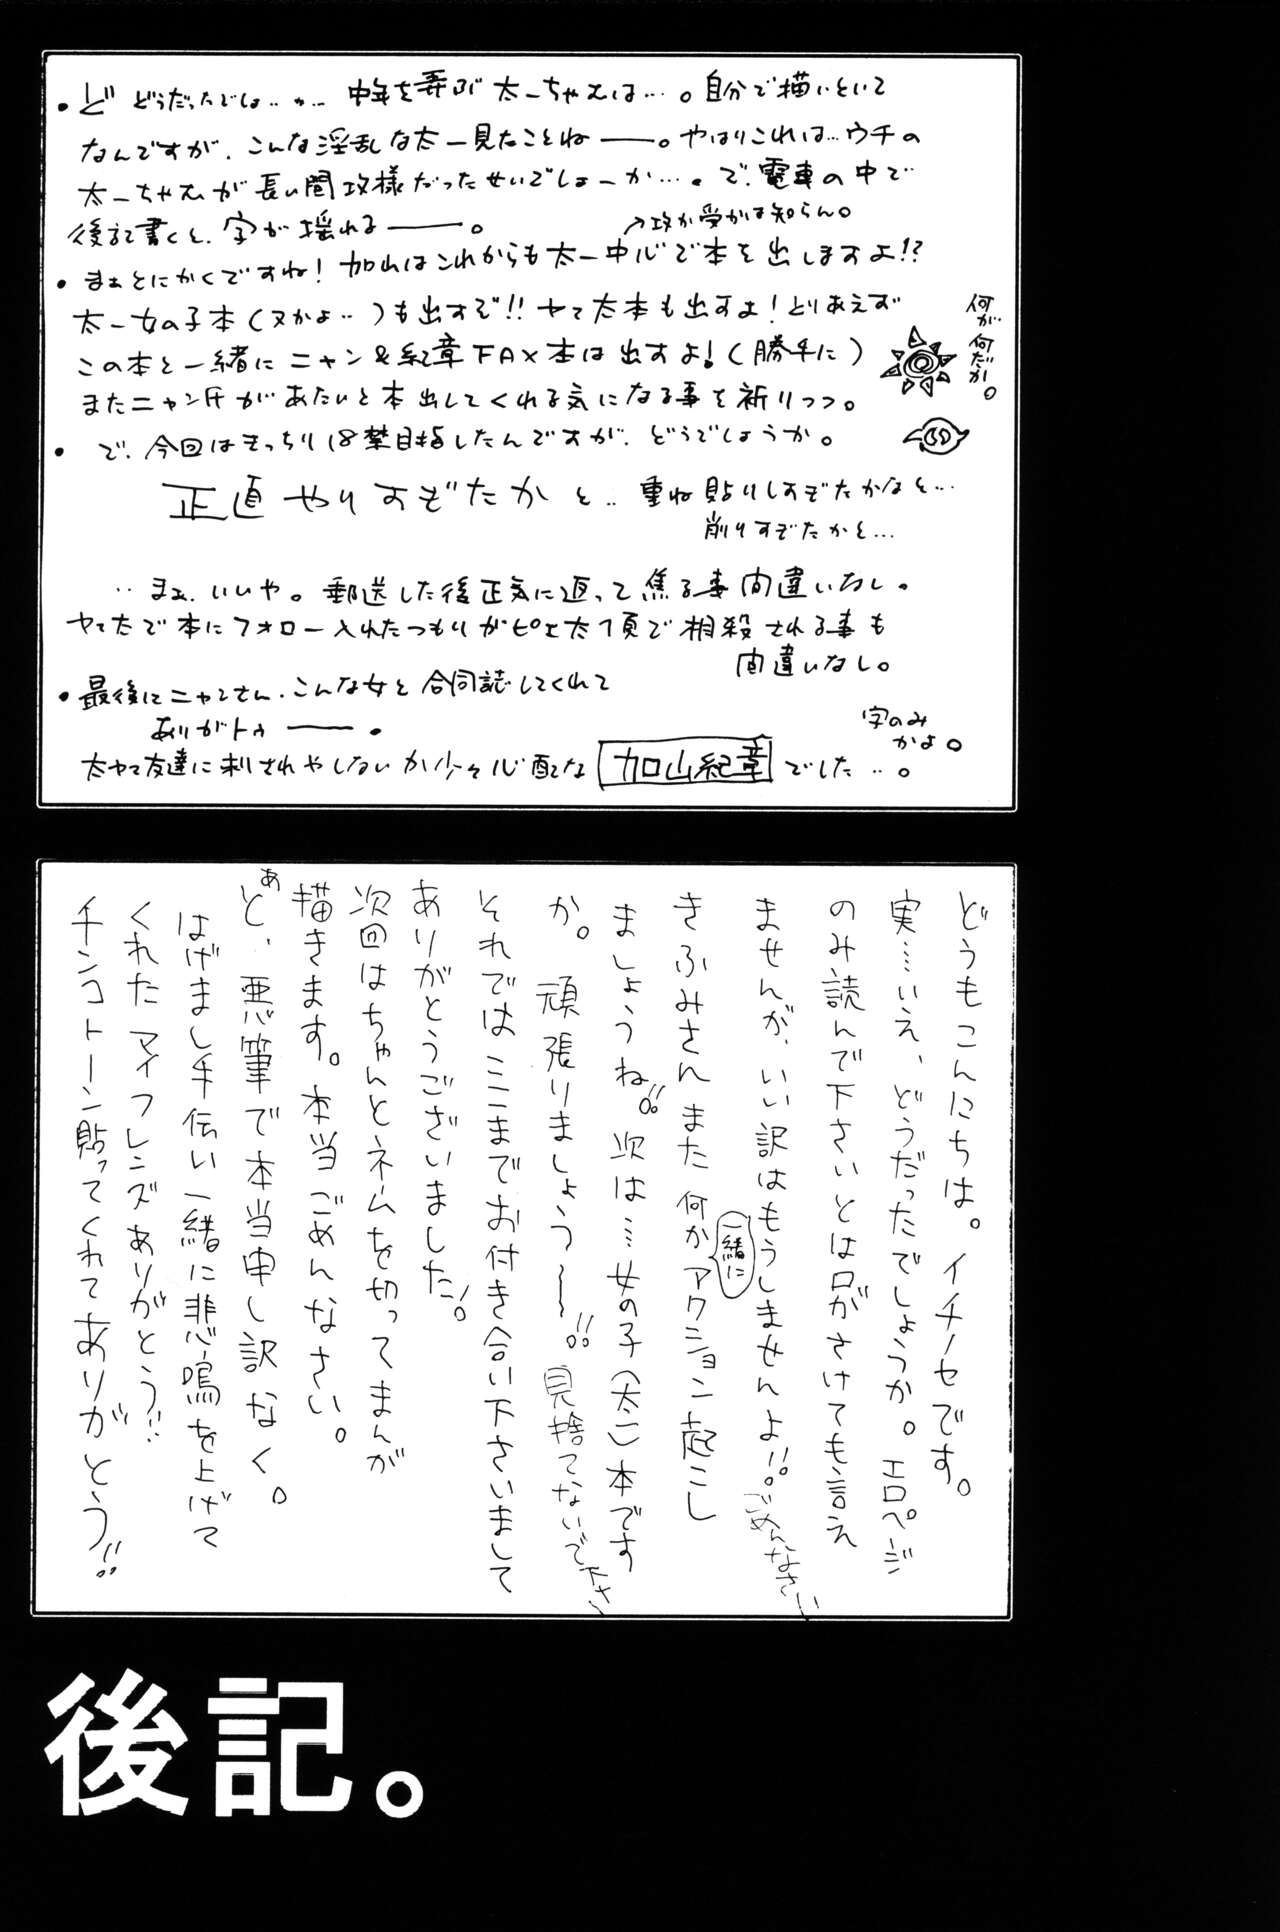 ・ど どうだったでしょ‥か… 中年を弄ぶ太一ちゃんは…。自分で描いといて
なんですが、こんな淫乱な太一見たことねーー。やはりこれは…ウチの
太一ちゃんが長い間攻様だったせいでしょーか…。で、電車の中で
後記書くと、字が揺れるーー。
→攻か受かは知らん。
・まぁとにかくですね!加山はこれからも太一中心で本を出しますよ!?
太一女の子本(又かよ‥)も出すぞ!!ヤマ太本も出すよ!とりあえず
この本と一緒にニャン&紀章FAX本は出すよ!(勝手に)
またニャン氏があたいと本出してくれる気になる事を祈りつつ。
何が
何だか。
・で、今回はきっちり18禁目指したんですが、どうでしょうか。
正直やりすぎたかと‥重ね貼りしすぎたかなと…
削りすぎたかと…
‥まぁ、いいや。郵送した後正気に返って焦る事間違いなし。
ヤマ太で本にフォロー入れたつもりがピエ太1頁で相殺される事も
間違いなし。
・最後にニャンさん、こんな女と合同誌してくれて
ありがトゥーー。
字のみ
かよ。
太ヤマ友達に刺されやしないか少々心配な 加山紀章 でした‥。
どうもこんにちは。イチノセです。
実…いえ、どうだったでしょうか。エロページ
のみ読んで下さいとは口がさけても言え
ませんが、いい訳はもうしませんよ!!。ごめんなさい
きふみさんまた何か一緒にアクション起こし
ましょうね!!。次は…女の子(太一)本です
か。頑張りましょう〜〜!!見捨てないで下さい
それではここまでお付き合い下さいまして
ありがとうございました!。
次回はちゃんとネームを切ってまんが
描きます。本当ごめんなさい。
あと、悪筆で本当申し訳なく。
はげまし手伝い一緒に悲鳴を上げて
くれたマイフレンズありがとう!!
チンコトーン貼ってくれてありがとう!!
後記。